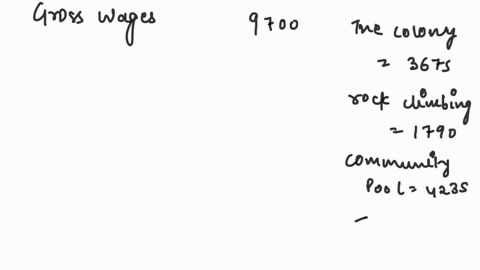 Gross Wages 9700
The colony
= 3675
rock climbing
= 1790
Community
Pool = 4235